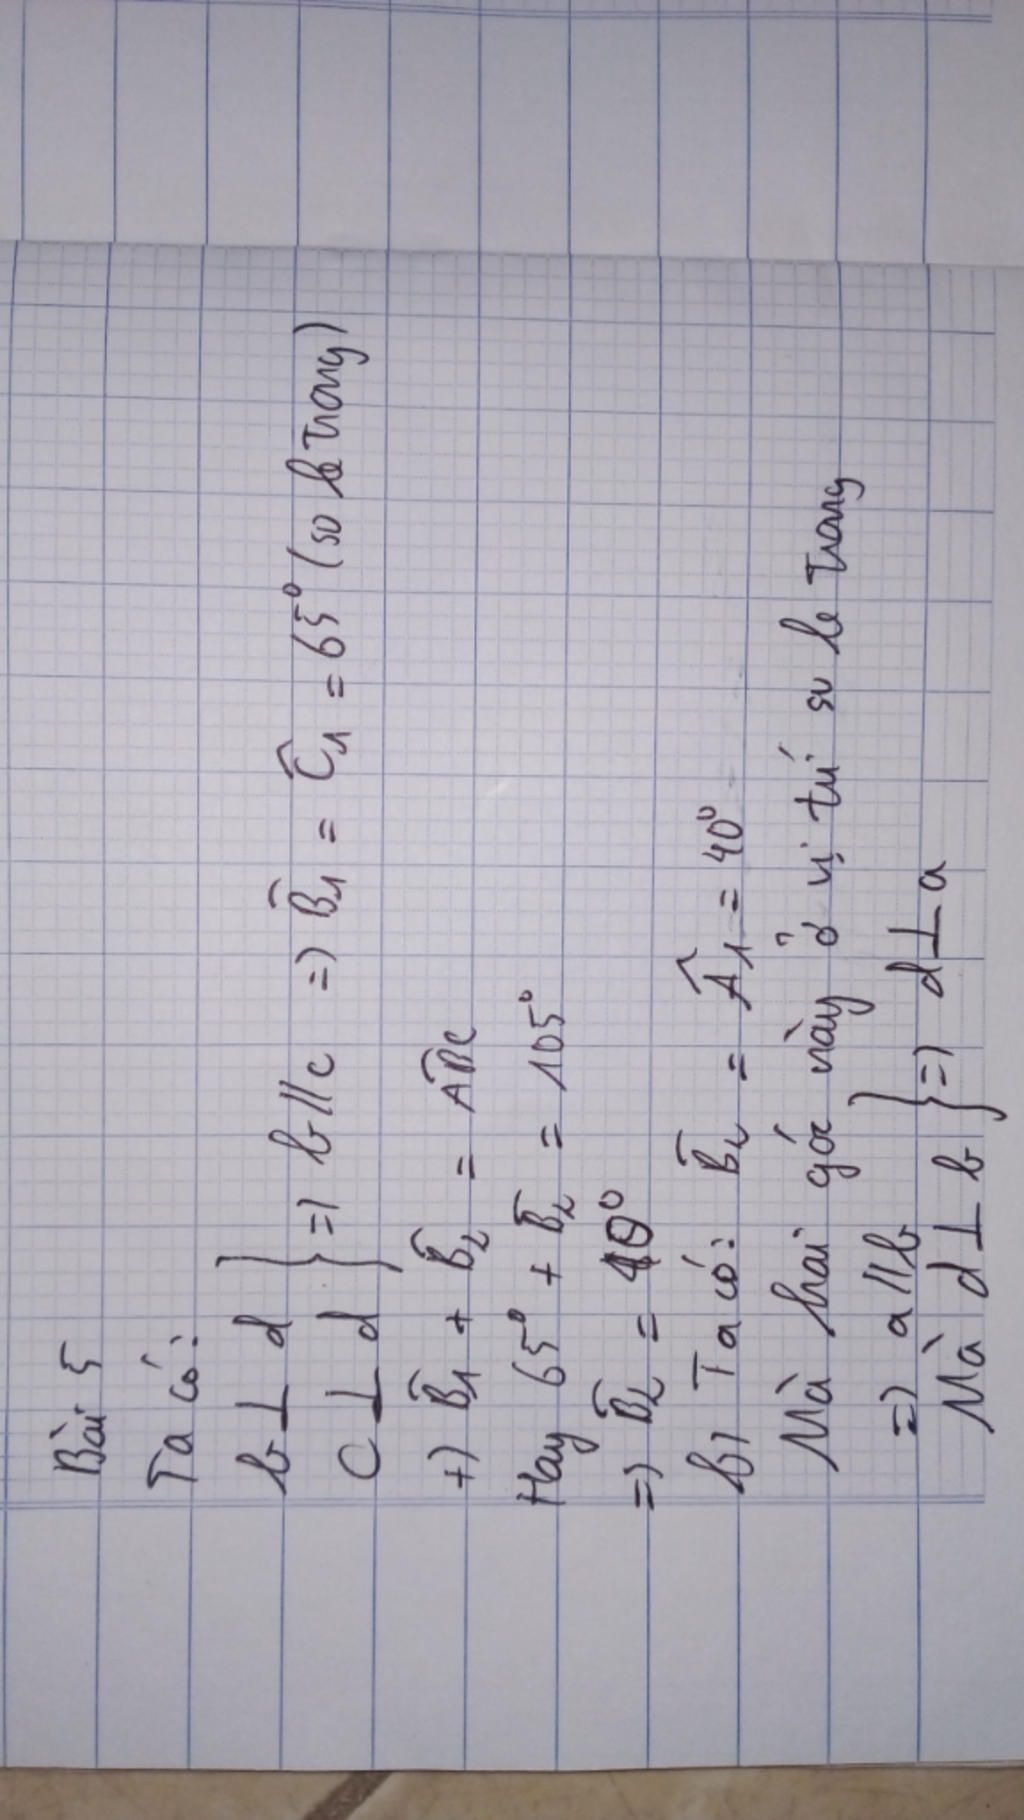 Bài 5
Ta có:
b ⊥ d
c ⊥ d } => b // c => B̂₁ = Ĉ₁ = 65° (so le trong)
+) B̂₁ + B̂₂ = ABC̑
Hay 65° + B̂₂ = 105°
=> B̂₂ = 40°
b) Ta có: B̂₂ = Â₁ = 40°
Mà hai góc này ở vị trí so le trong
=> a // b
Mà d ⊥ b } => d ⊥ a